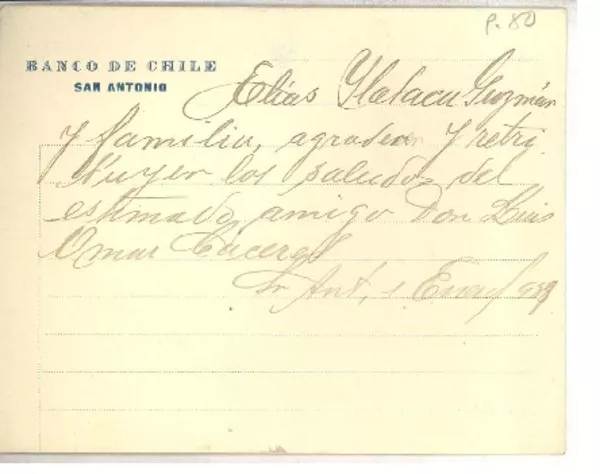 p. 80
BANCO DE CHILE
SAN ANTONIO
Elías Ilalacu Guzmán
y familia, agradecen y retri
buyen los saludos del
estimado amigo Don Luis
Omar Cáceres
Sn Ant, 1 Enero/939